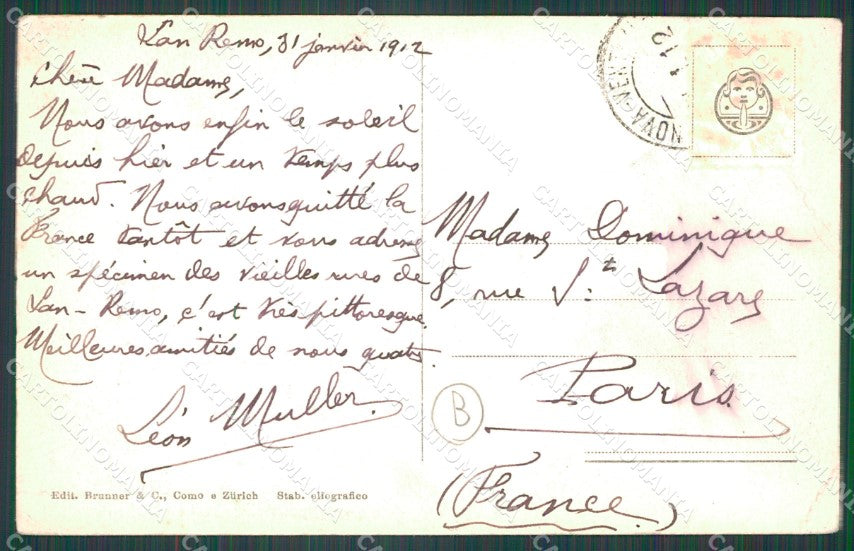 San Remo, 31 janvier 1912
Chère Madame,
Nous avons enfin le soleil
depuis hier et un temps plus
chaud. Nous avons quitté la
France tantôt et vous adresse
un spécimen des vieilles rues de
San-Remo, c'est très pittoresque.
Meilleures amitiés de nous quatre.
Léon Muller.
Edit. Brunner & C., Como e Zürich Stab. eliografico
NOVA-VENT
1.12
Madame Dominique
8, rue St. Lazare
Paris
(France)
B
CARTOLINOMANIA